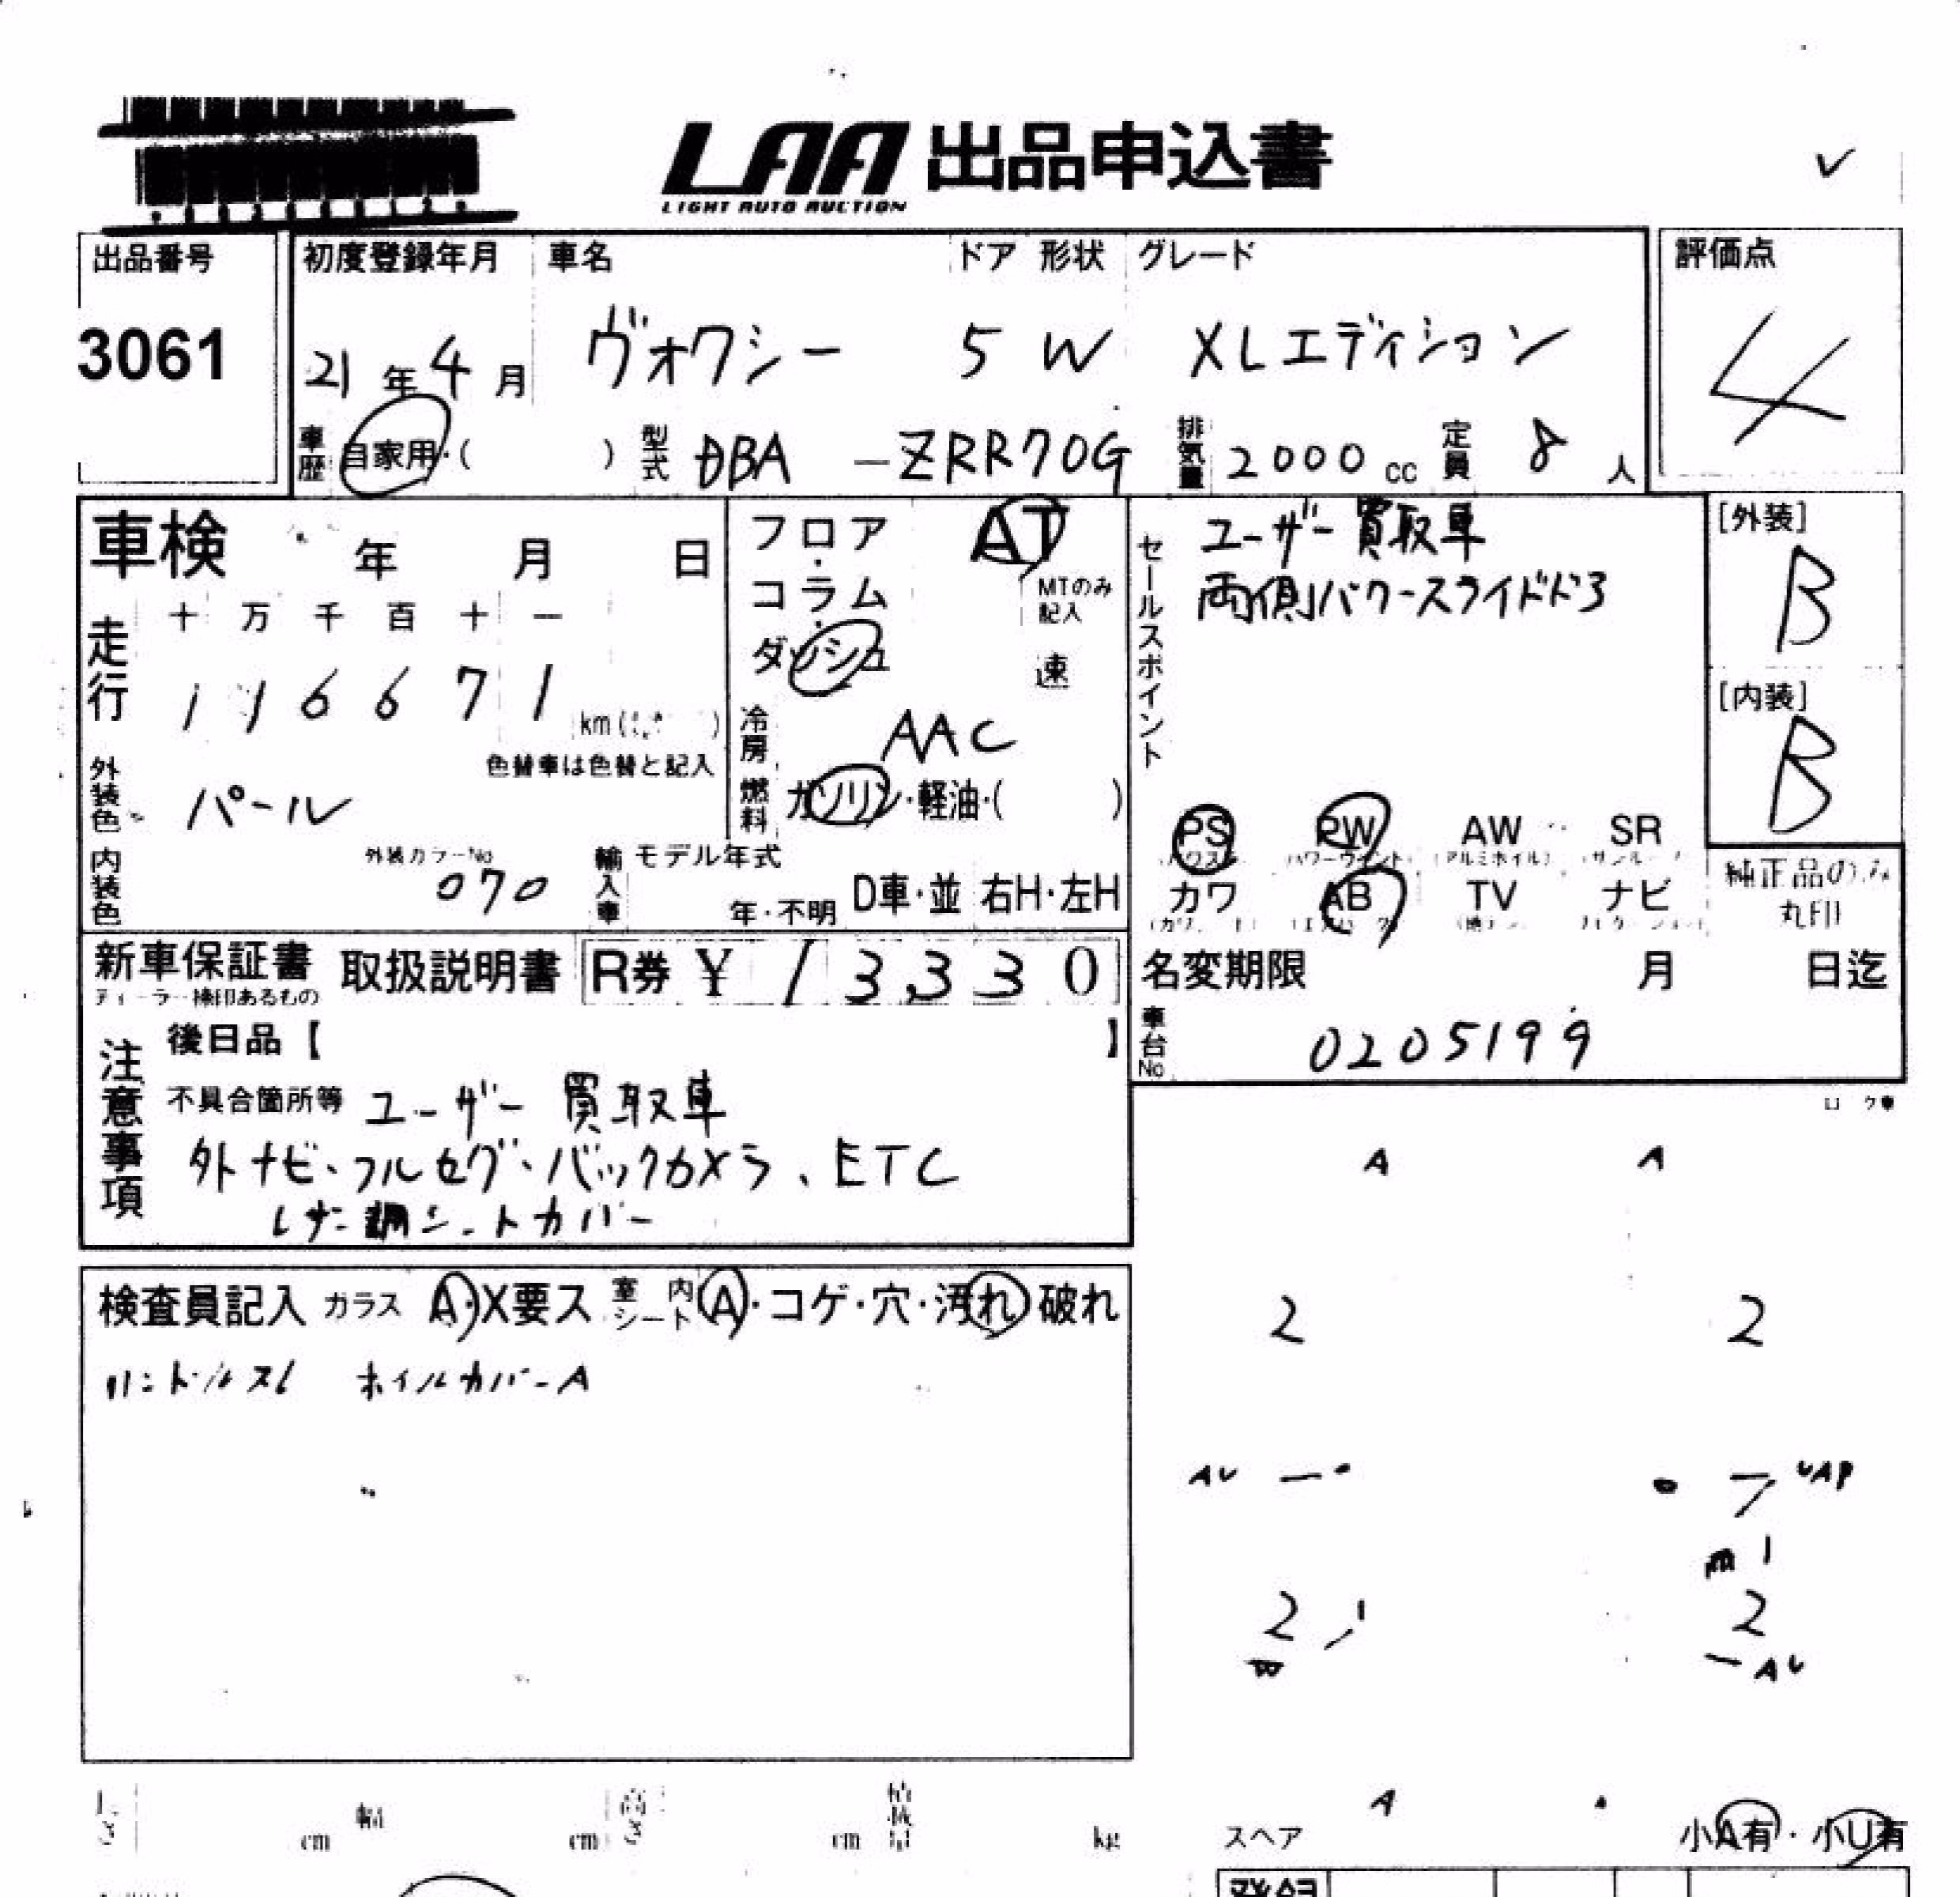 LAA 出品申込書
LIGHT AUTO AUCTION
出品番号 初度登録年月 車名 ドア 形状 グレード 評価点
3061 21年4月 ヴォクシー 5 W XLエディション 4
車歴 自家用・( ) 型式 DBA -ZRR70G 排気量 2000 cc 定員 8 人
車検 年 月 日
走行 十 万 千 百 十 一
116671 km ( )
色替車は色替と記入
外装色 パール
内装色 外装カラーNo 070
輸入車 モデル年式 年・不明 D車・並 右H・左H
フロア・コラム・ダッシュ AT
MTのみ記入 速
冷房 AAC
燃料 ガソリン・軽油・( )
セールスポイント
ユーザー買取車
両側パワースライドドア
PS PW AW SR
カワ AB TV ナビ
純正品のみ丸印
[外装] B
[内装] B
新車保証書 取扱説明書 R券 ¥ 13,330
ディーラー捺印あるもの
名変期限 月 日迄
車台No 0205199
注意事項
後日品【 】
不具合箇所等 ユーザー買取車
外ナビ、フルセグ、バックカメラ、ETC
レザー調シートカバー
検査員記入 ガラス A・X要ス 室内シート A・コゲ・穴・汚れ 破れ
ハンドルスレ ホイルカバーA
A A
2 2
AU
2 2
AU
A
cm 幅 cm 高さ cm kg
スペア 小A有・小U有
登録